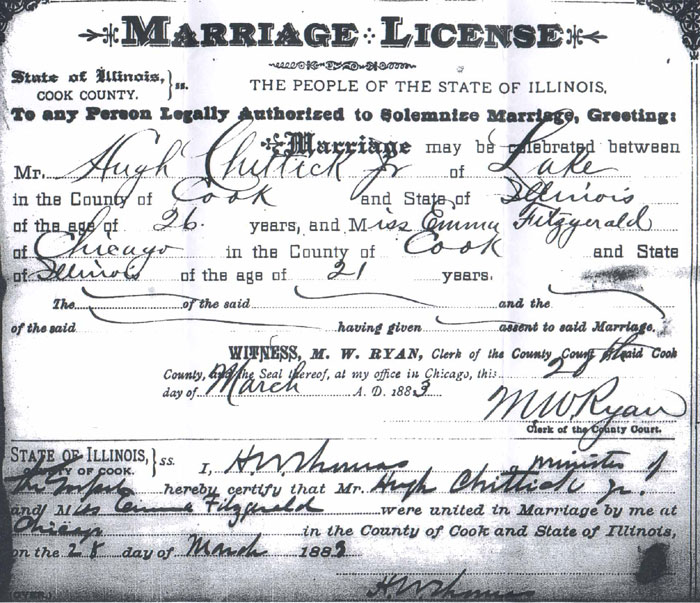 MARRIAGE LICENSE
State of Illinois, } ss.
COOK COUNTY.
THE PEOPLE OF THE STATE OF ILLINOIS,
To any Person Legally Authorized to Solemnize Marriage, Greeting:
Marriage may be celebrated between
Mr. Hugh Chittick Jr of Lake
in the County of Cook and State of Illinois
of the age of 26. years, and Miss Emma Fitzgerald
of Chicago in the County of Cook and State
of Illinois of the age of 21 years.
The of the said and the
of the said having given assent to said Marriage.
WITNESS, M. W. RYAN, Clerk of the County Court of said Cook
County, and the Seal thereof, at my office in Chicago, this 28th
day of March A. D. 1883
M W Ryan
Clerk of the County Court.
STATE OF ILLINOIS, } ss.
COUNTY OF COOK.
I, H W Thomas Minister of
the Gospel hereby certify that Mr. Hugh Chittick Jr.
and Miss Emma Fitzgerald were united in Marriage by me at
Chicago in the County of Cook and State of Illinois,
on the 28 day of March 1883
H W Thomas
(OVER.)